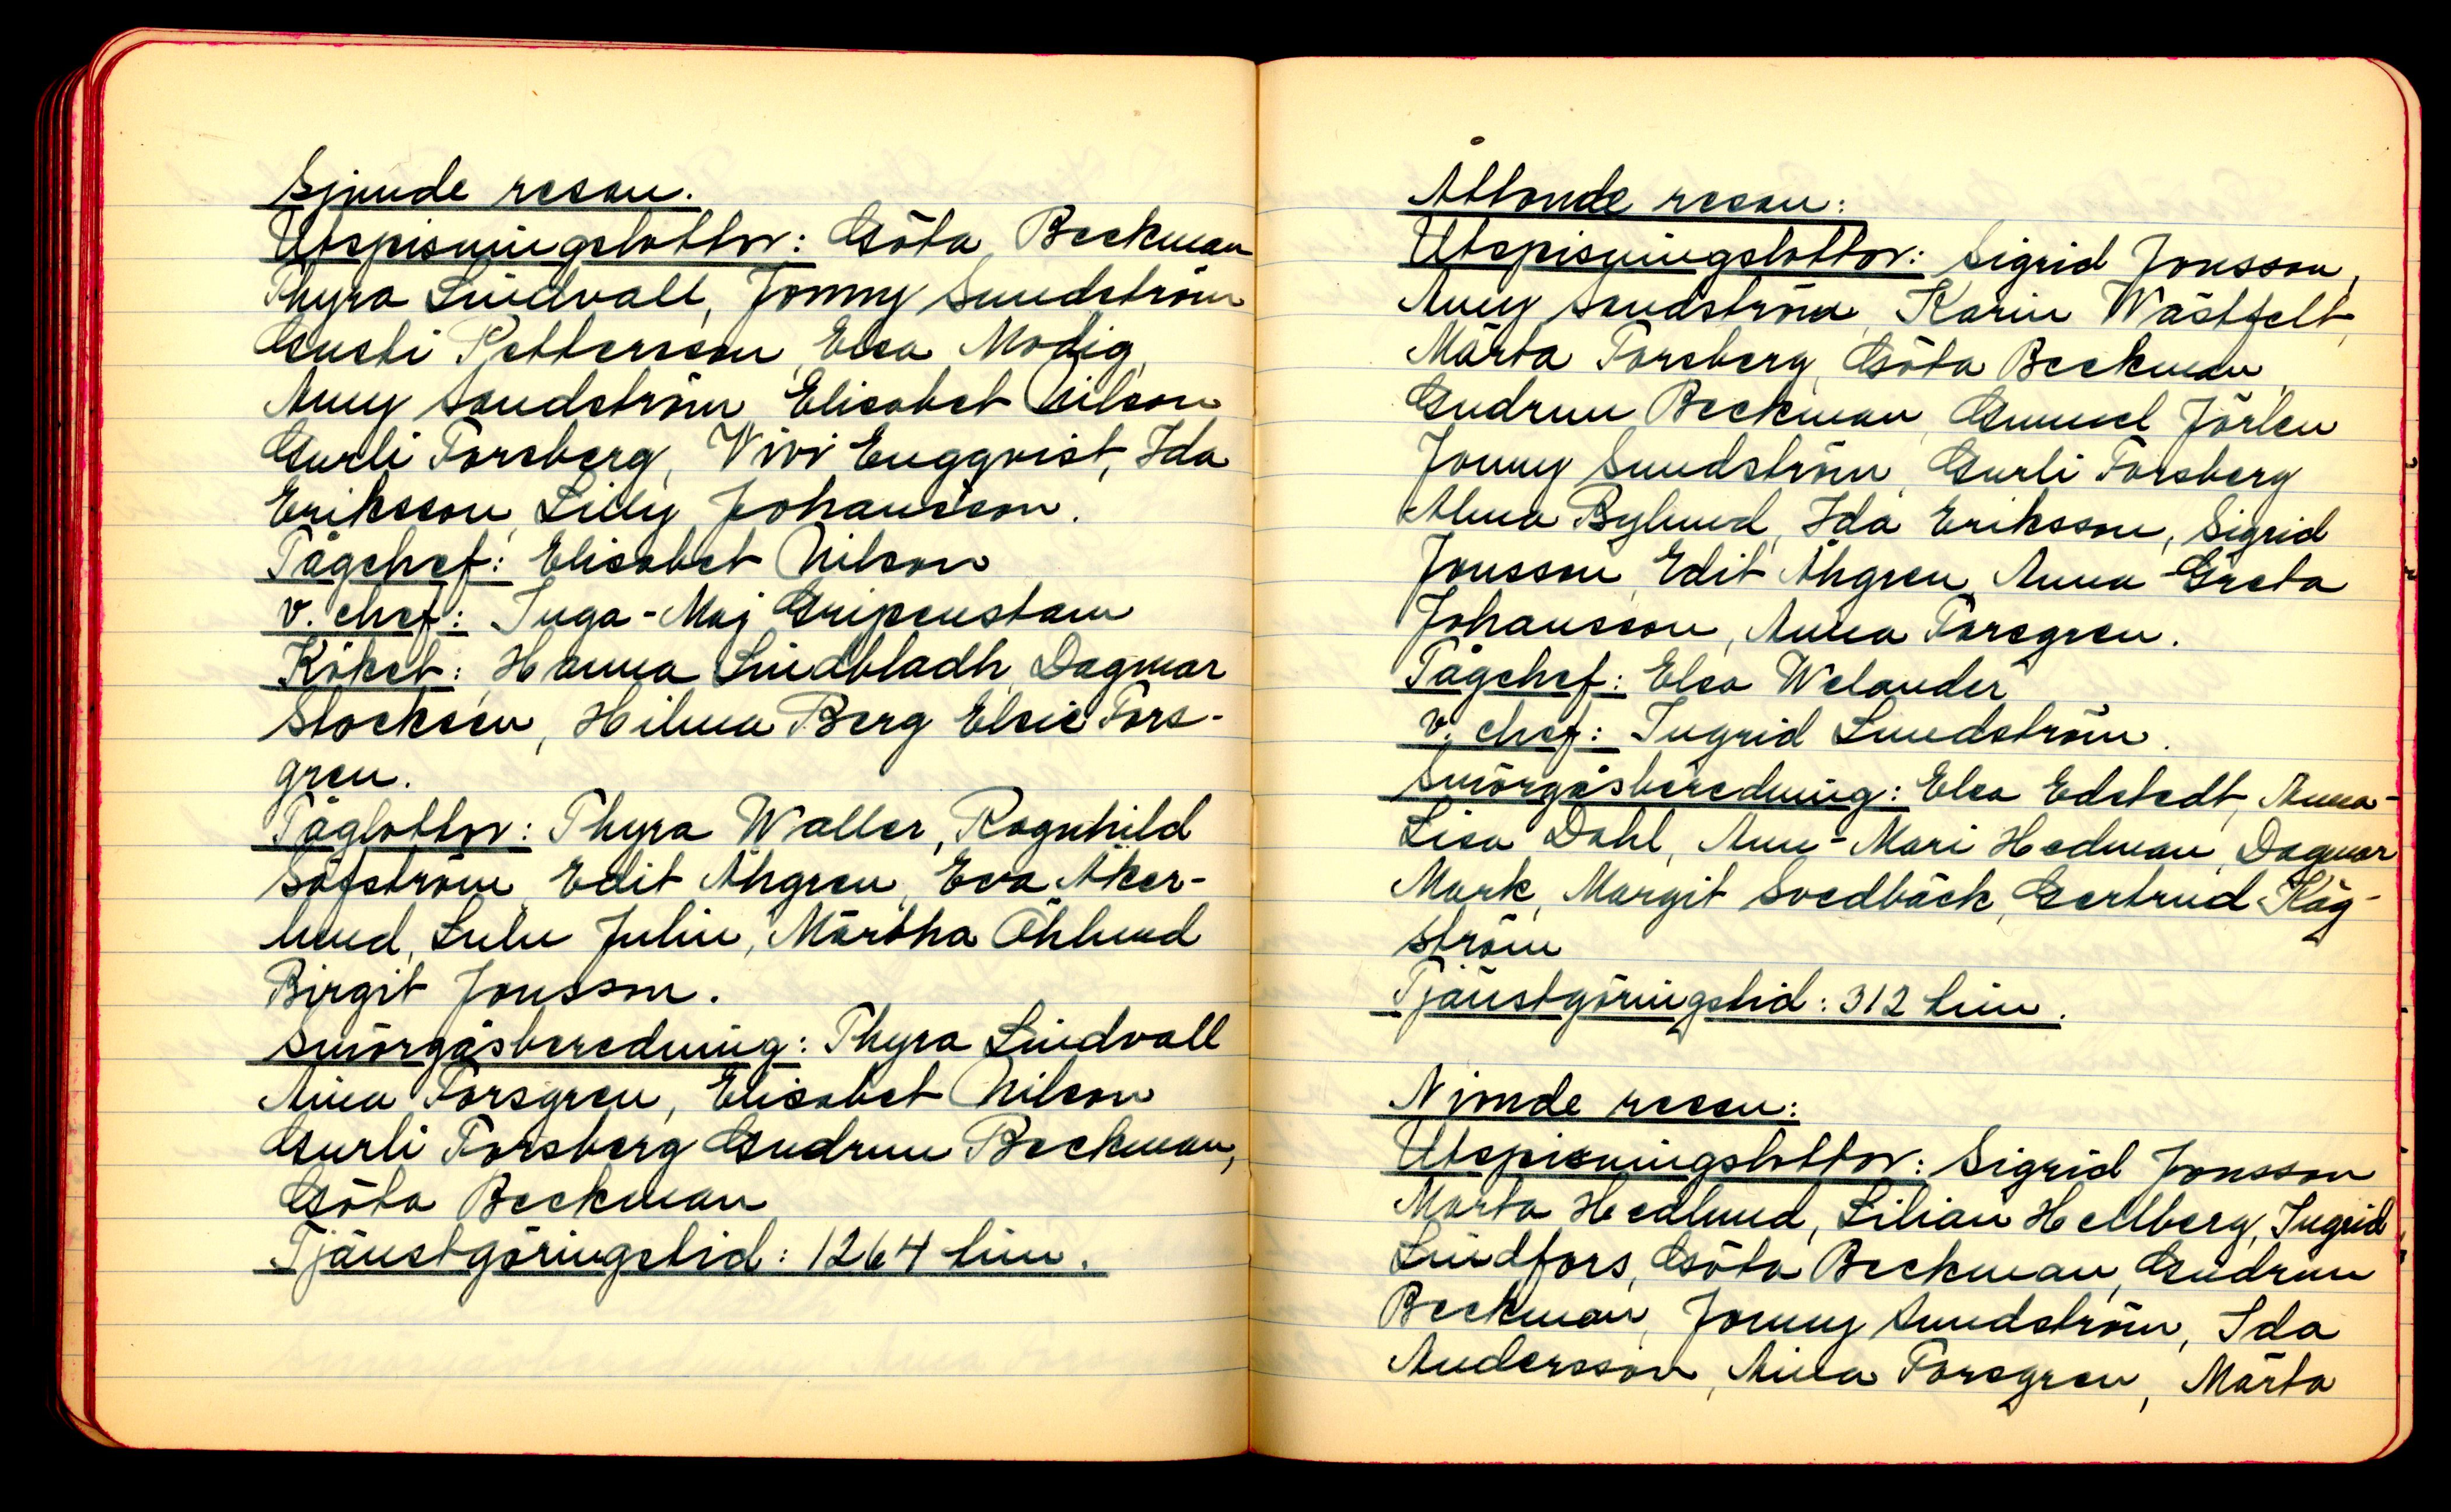 Sjunde resan.
Utspisningslottor: Göta Beckman
Thyra Lindvall, Jonny Sundström
Gusti Pettersson, Elsa Modig,
Anny Sandström, Elisabet Nilson
Gurli Forsberg, Vivi Engqvist, Ida
Eriksson, Lilly Johansson.
Tågchef: Elisabet Nilson
v. chef: Inga-Maj Gripenstam
Köket: Hanna Lindbladh, Dagmar
Stocksén, Hilma Berg Elsie Fors-
gren.
Tåglottor: Thyra Waller, Ragnhild
Säfström, Edit Åhgren, Eva Åker-
lund, Lulu Julin, Märtha Öhlund
Birgit Jonsson.
Smörgåsberedning: Thyra Lindvall
Aina Forsgren, Elisabet Nilson
Gurli Forsberg Gudrun Beckman,
Göta Beckman
Tjänstgöringstid: 1264 tim.
Åttonde resan:
Utspisningslottor: Sigrid Jonsson,
Anny Sandström, Karin Wästfelt,
Märta Forsberg, Göta Beckman,
Gudrun Beckman, Gunnel Jörlen
Jonny Sundström, Gurli Forsberg
Alma Bylund, Ida Eriksson, Sigrid
Jonsson, Edit Åhgren, Anna-Greta
Johansson, Aina Forsgren.
Tågchef: Elsa Welander
v. chef: Ingrid Lundström.
Smörgåsberedning: Elsa Edstedt, Anna-
Lisa Dahl, Ann-Mari Hedman, Dagmar
Mark, Margit Svedbäck, Gertrud Häg-
ström
Tjänstgöringstid: 312 tim.
Nionde resan:
Utspisningslottor: Sigrid Jonsson
Märta Hedlund, Lilian Hellberg, Ingrid
Lindfors, Göta Beckman, Gudrun
Beckman, Jonny Sundström, Ida
Andersson, Aina Forsgren, Märta